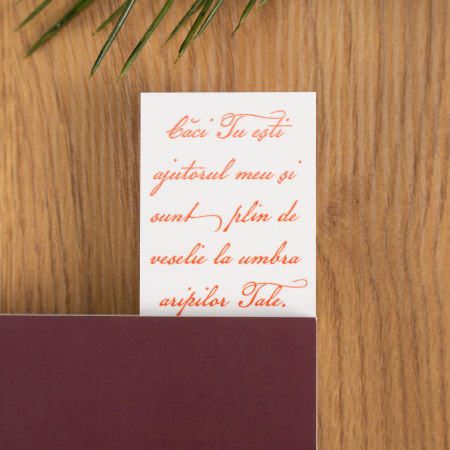 Căci Tu ești
ajutorul meu și
sunt plin de
veselie la umbra
aripilor Tale.